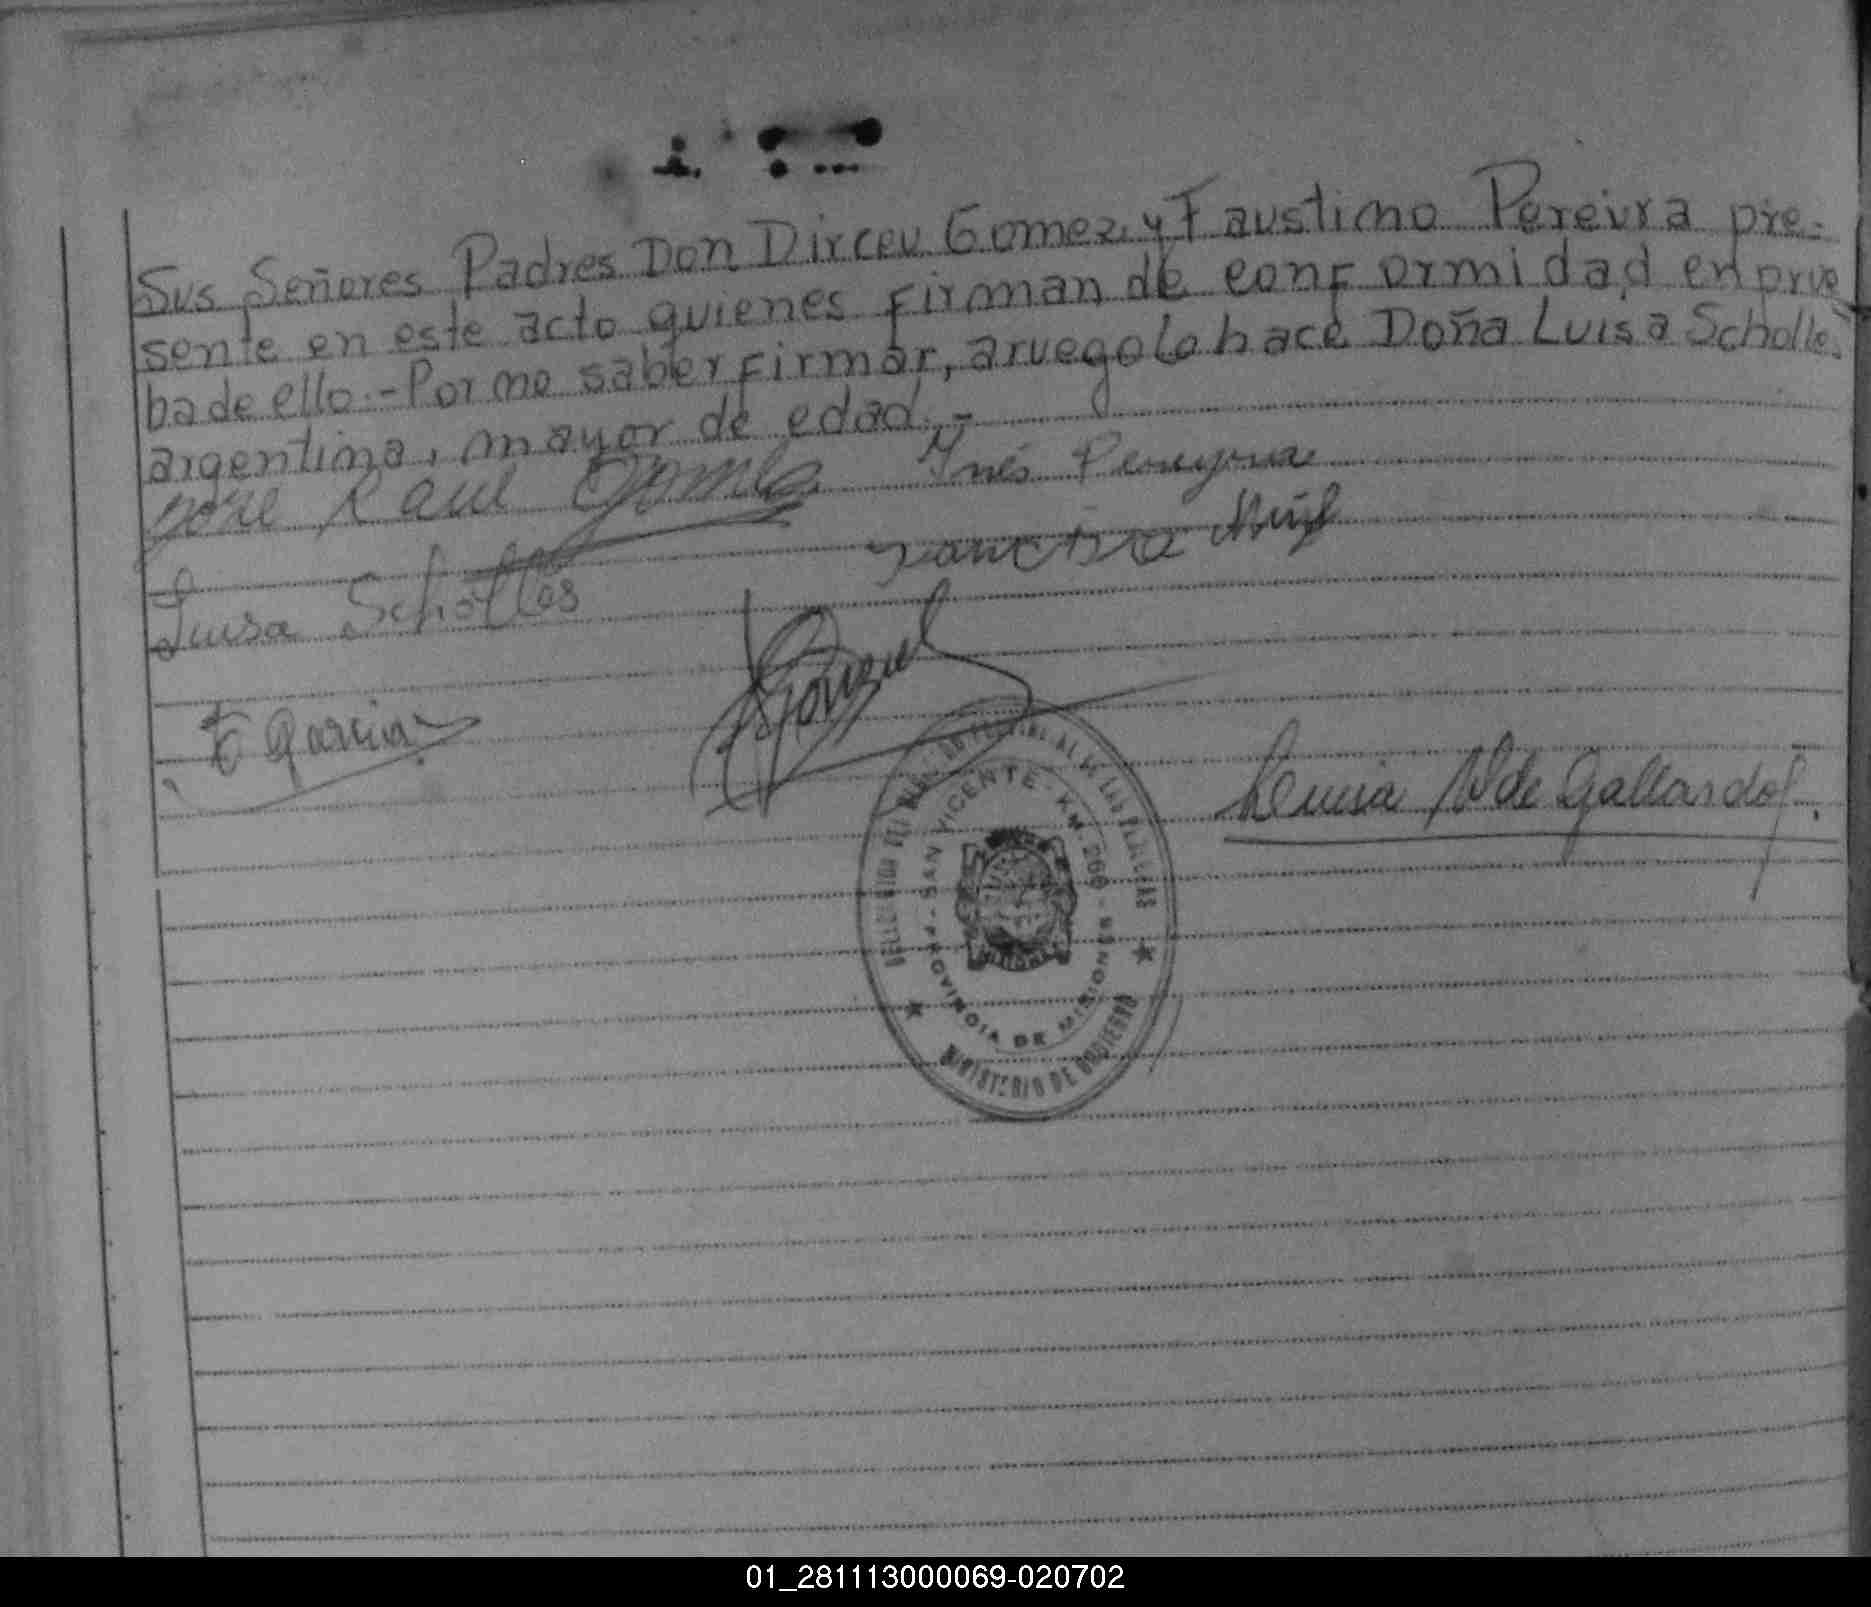 Sus Señores Padres Don Dirceu Gomez, y Faustino Pereira pre-
sente en este acto quienes firman de conformidad en prue
ba de ello.-Por no saber firmar, a ruego lo hace Doña Luisa Scholles
argentina, mayor de edad.-
José Raul Gomez Inés Pereyra
Luisa Scholles
E Garcia
Gonzal
Luisa V de Gallardo
SAN VICENTE - KM 266 - PROVINCIA DE MISIONES
MINISTERIO DE GOBIERNO
01_281113000069-020702